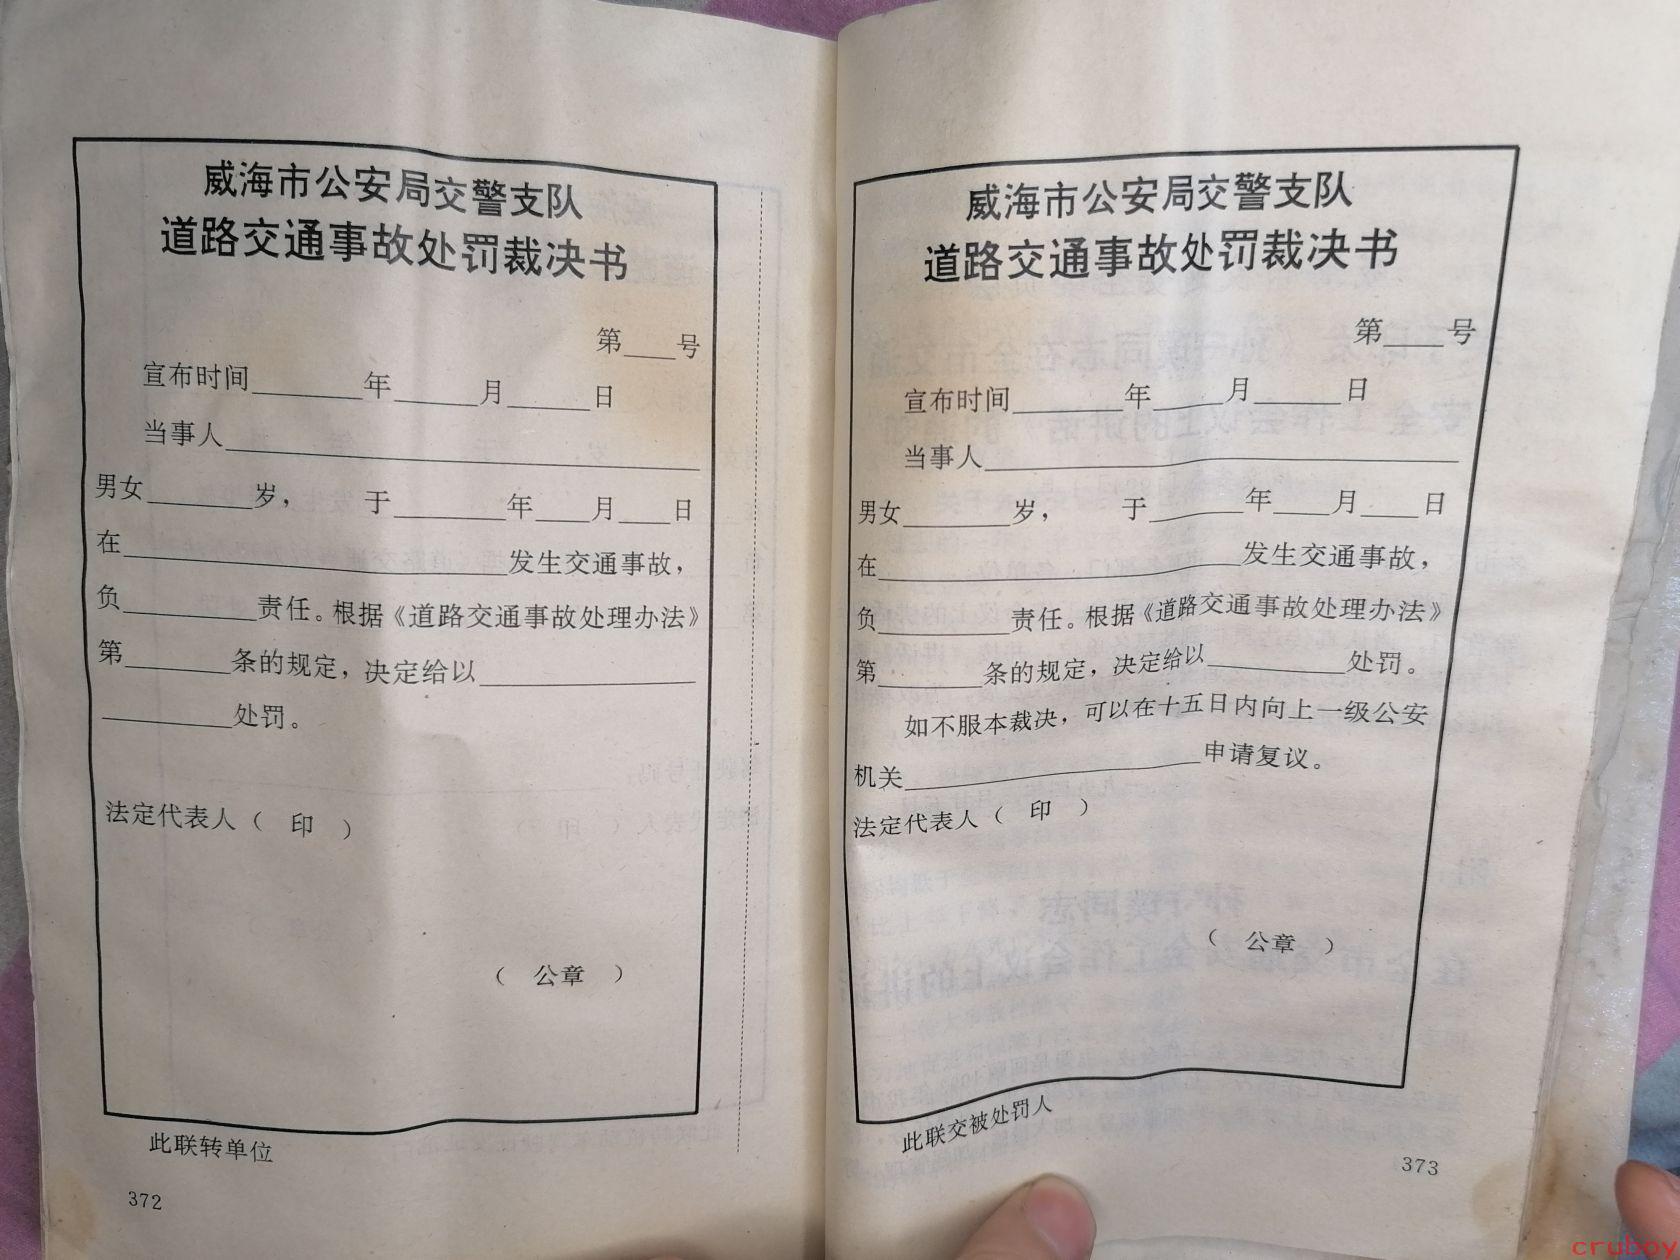 威海市公安局交警支队
道路交通事故处罚裁决书
第____号
宣布时间________年______月______日
当事人________________
男女________岁， 于________年____月____日
在________________发生交通事故，
负________责任。根据《道路交通事故处理办法》
第________条的规定，决定给以________________
________处罚。
法定代表人（ 印 ）
（ 公章 ）
此联转单位
372
威海市公安局交警支队
道路交通事故处罚裁决书
第____号
宣布时间________年______月______日
当事人________________
男女________岁， 于________年____月____日
在________________发生交通事故，
负________责任。根据《道路交通事故处理办法》
第________条的规定，决定给以________处罚。
如不服本裁决，可以在十五日内向上一级公安
机关________________申请复议。
法定代表人（ 印 ）
（ 公章 ）
此联交被处罚人
373
cruboy